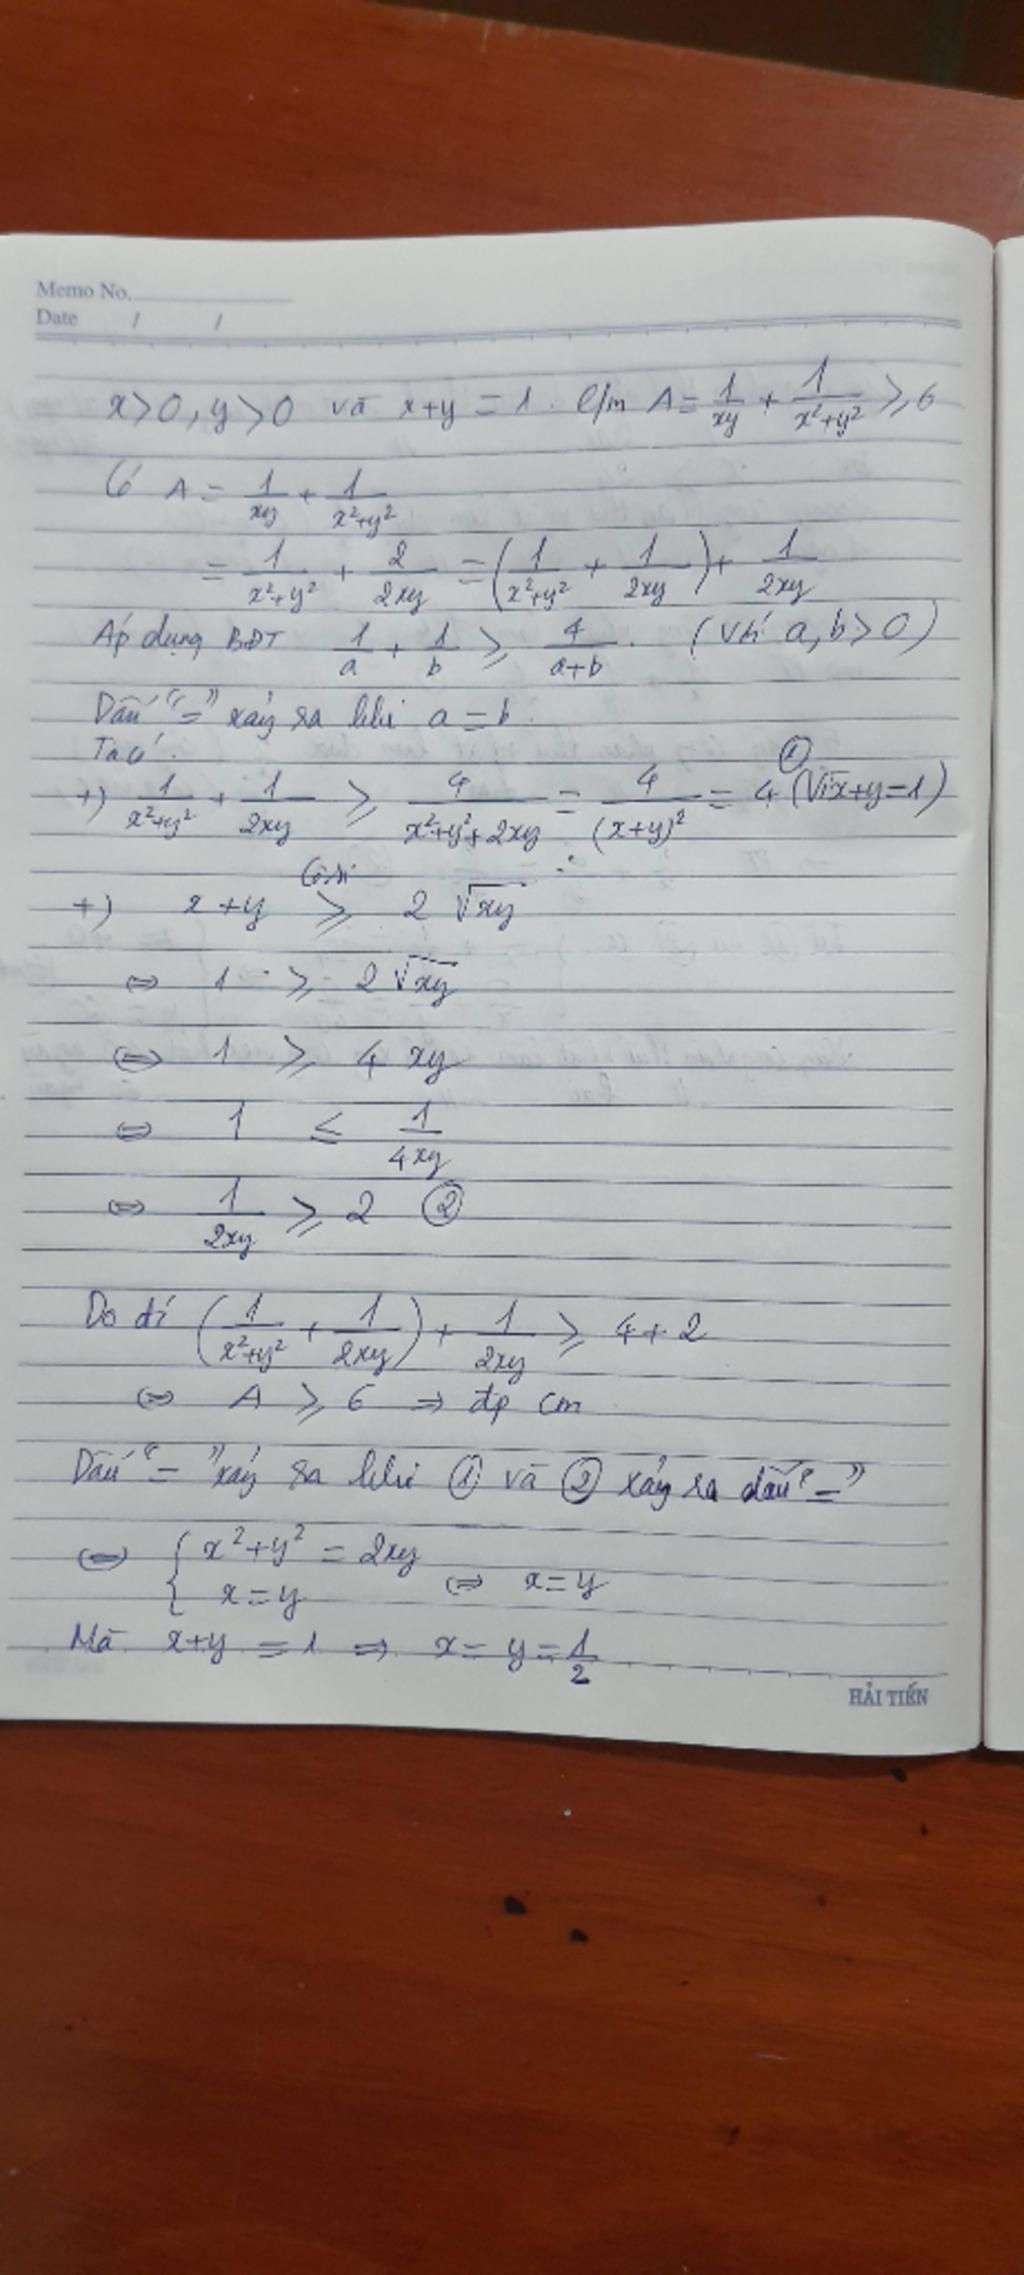 Memo No.
Date / /
x>0, y>0 và x+y = 1. C/m A = 1/xy + 1/(x²+y²) ≥ 6
Có A = 1/xy + 1/(x²+y²)
= 1/(x²+y²) + 2/2xy = (1/(x²+y²) + 1/2xy) + 1/2xy
Áp dụng BĐT 1/a + 1/b ≥ 4/(a+b). (Với a, b>0)
Dấu "=" xảy ra khi a = b.
Ta có:
+) 1/(x²+y²) + 1/2xy ≥ 4/(x²+y²+2xy) = 4/(x+y)² = 4 ① (Vì x+y=1)
+) x+y ≥ 2√xy Cosi
⇔ 1 ≥ 2√xy
⇔ 1 ≥ 4xy
⇔ 1 ≤ 1/4xy
⇔ 1/2xy ≥ 2 ②
Do đó (1/(x²+y²) + 1/2xy) + 1/2xy ≥ 4+2
⇔ A ≥ 6 ⇒ đp cm
Dấu "=" xảy ra khi ① và ② xảy ra dấu "="
⇔ { x²+y² = 2xy
x = y ⇔ x = y
Mà x+y = 1 ⇒ x = y = 1/2
HẢI TIẾN